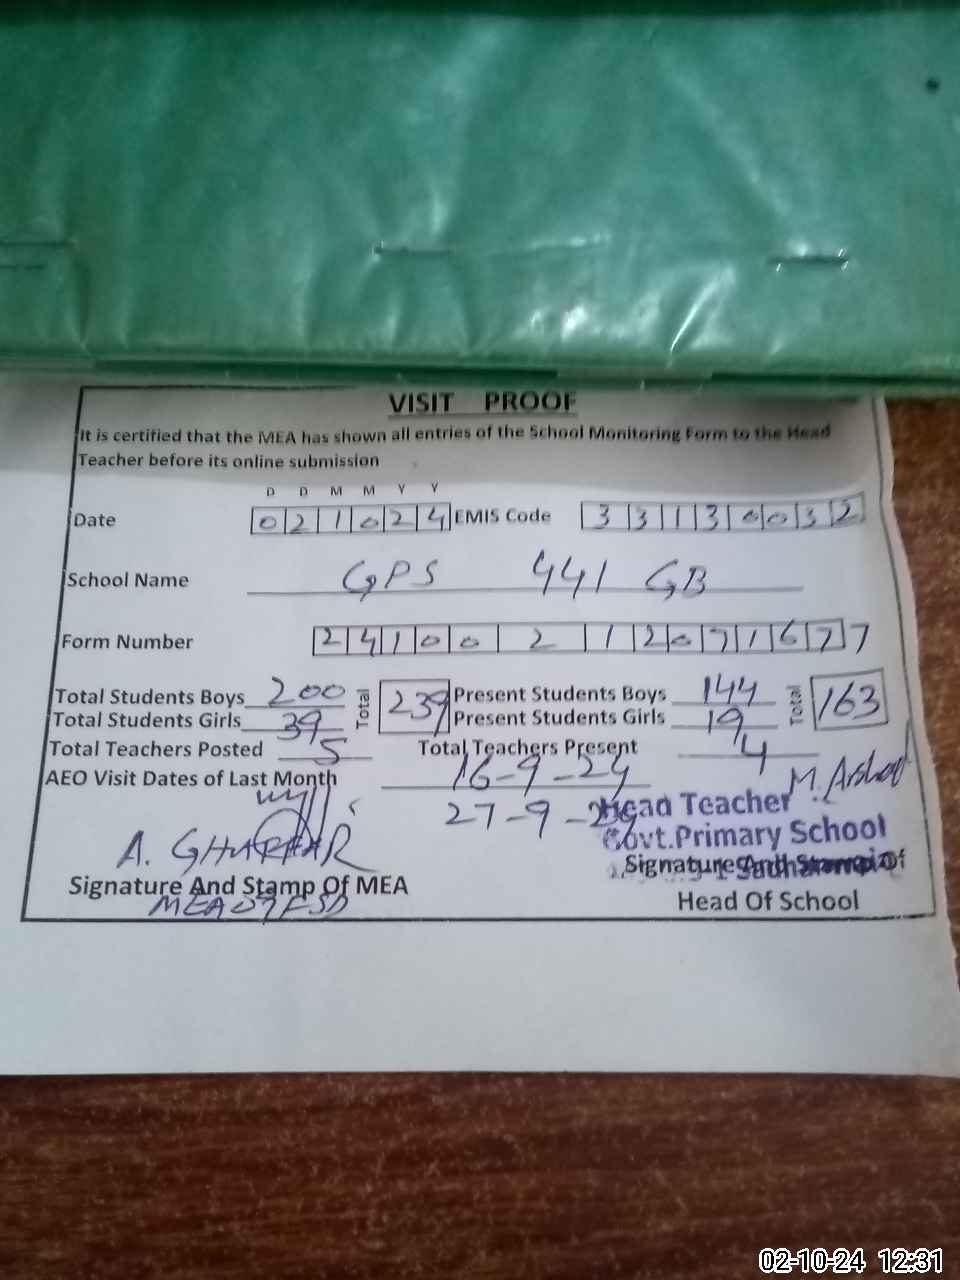 VISIT PROOF
It is certified that the MEA has shown all entries of the School Monitoring Form to the Head
Teacher before its online submission
D D M M Y Y
Date 021024 EMIS Code 33130032
School Name GPS 441 GB
Form Number 24100212071677
Total Students Boys 200 Total 239 Present Students Boys 144 Total 163
Total Students Girls 39 Present Students Girls 19
Total Teachers Posted 5 Total Teachers Present 4
AEO Visit Dates of Last Month 16-9-24
27-9-24
M. Arshad
Head Teacher
Govt.Primary School
A. GHAFFAR
Signature And Stamp Of MEA
MEA 07 FSD
Signature And Stamp Of
Head Of School
02-10-24 12:31